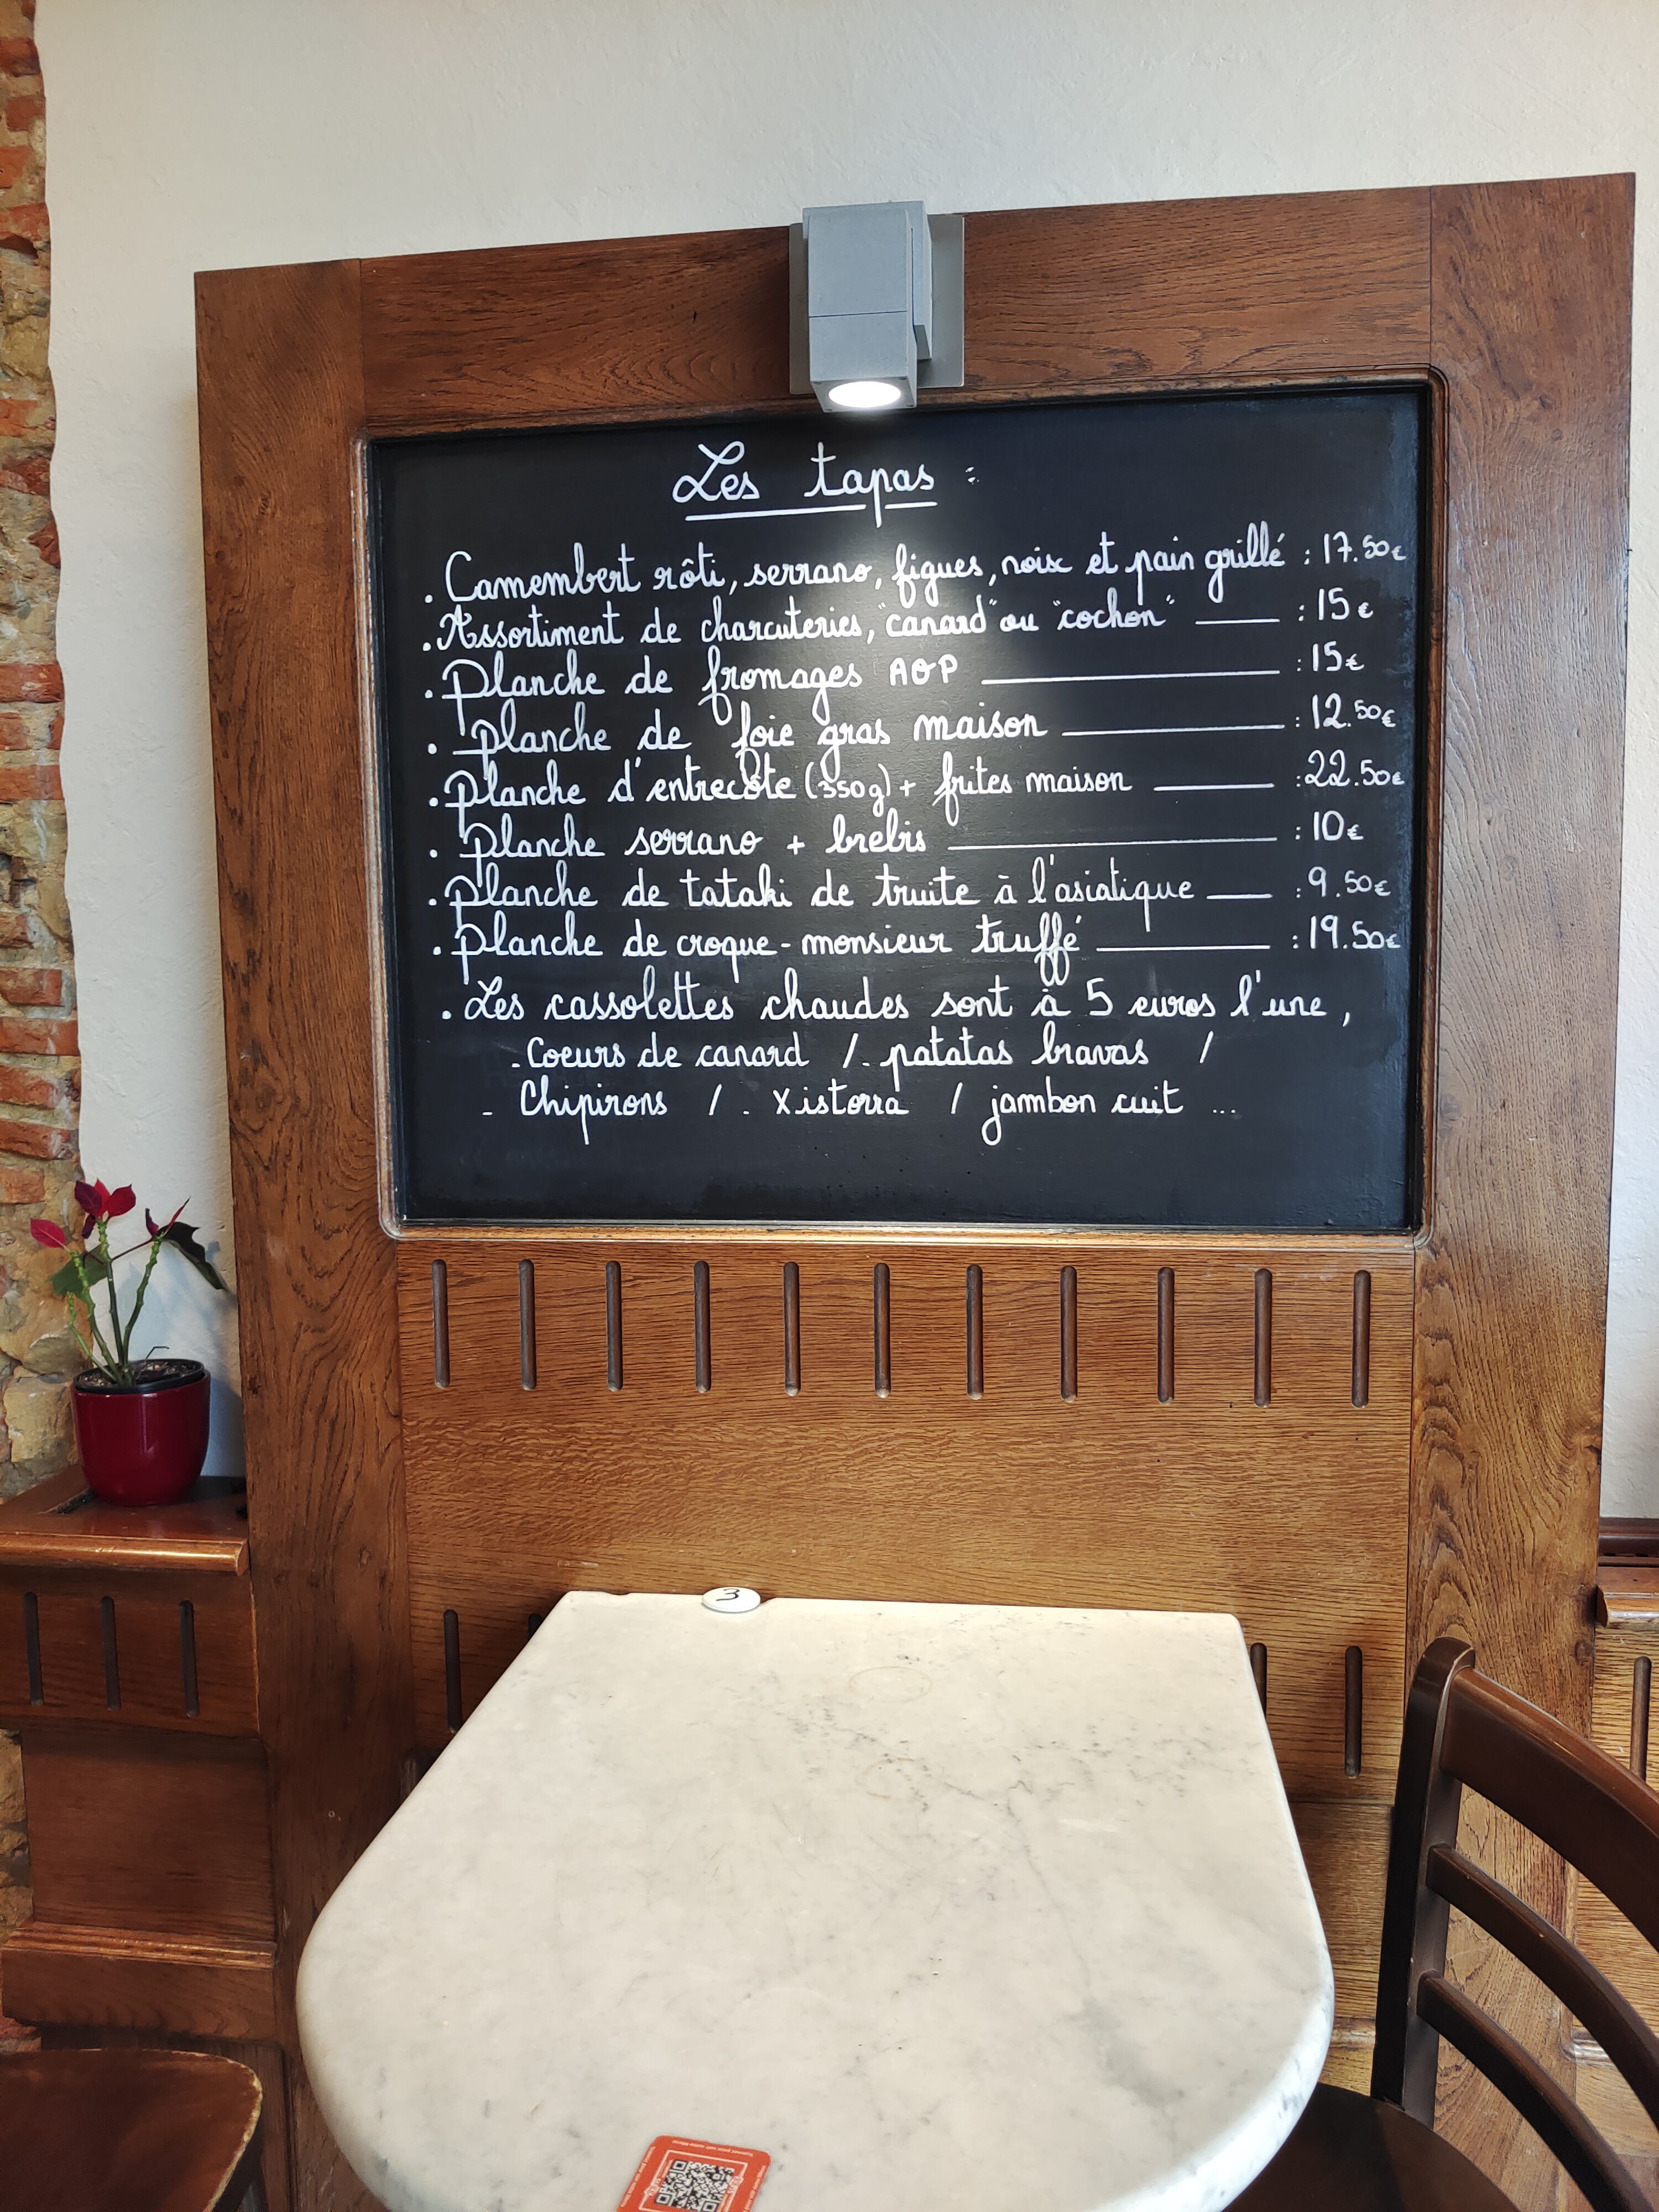 Les tapas :
. Camembert rôti, serrano, figues, noix et pain grillé : 17.50€
. Assortiment de charcuteries, "canard" ou "cochon" : 15€
. Planche de fromages AOP : 15€
. Planche de foie gras maison : 12.50€
. Planche d'entrecôte (350g) + frites maison : 22.50€
. Planche serrano + brebis : 10€
. Planche de tataki de truite à l'asiatique : 9.50€
. Planche de croque-monsieur truffé : 19.50€
. Les cassolettes chaudes sont à 5 euros l'une,
- Coeurs de canard / - patatas bravas /
- Chipirons / - Xistorra / jambon cuit ...
3